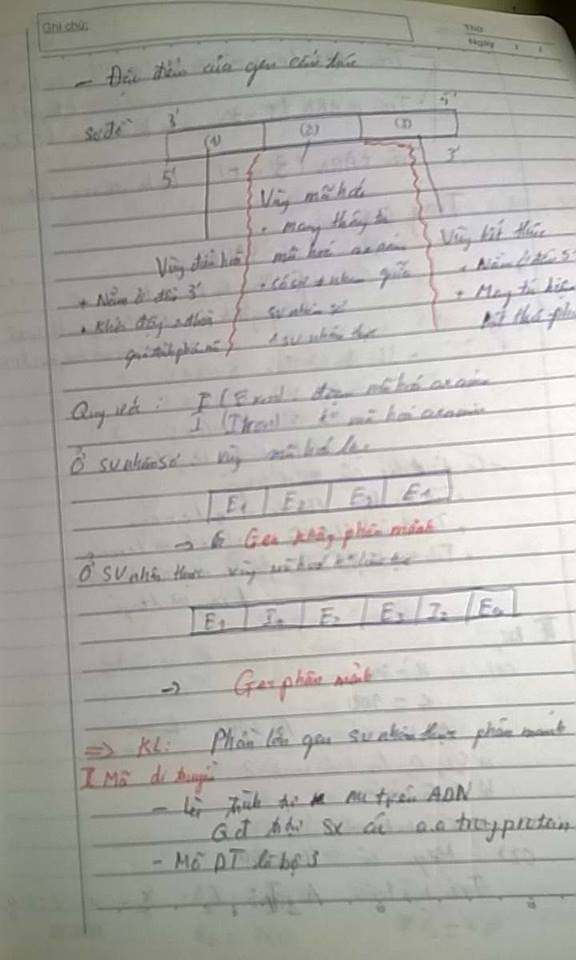 Ghi chú:
Thứ
Ngày
- Đặc điểm của gen cấu trúc
Sơ đồ 3' 5'
(1) (2) (3)
5' 3'
Vùng mã hoá
+ mang thông tin
mã hoá axamin
Vùng điều hoà
+ Nằm ở đầu 3'
+ Khởi động
Vùng kết thúc
+ Nằm ở đầu 5'
+ Mang tín hiệu
SV nhân sơ
SV nhân thực
Quy ước: E (Exon): đoạn mã hoá axamin
I (Intron): mã hoá axamin
Ở SV nhân sơ: vùng mã hoá
E1 E2 E3 E4
→ Gen không phân mảnh
Ở SV nhân thực vùng mã hoá
E1 I1 E2 E3 I2 E4
→ Gen phân mảnh
=> KL: Phần lớn gen SV nhân thực phân mảnh
I Mã di truyền
- Là trình tự nu trên ADN
Qđ trình tự SX các a.a trong protein
- Mã DT là bộ 3